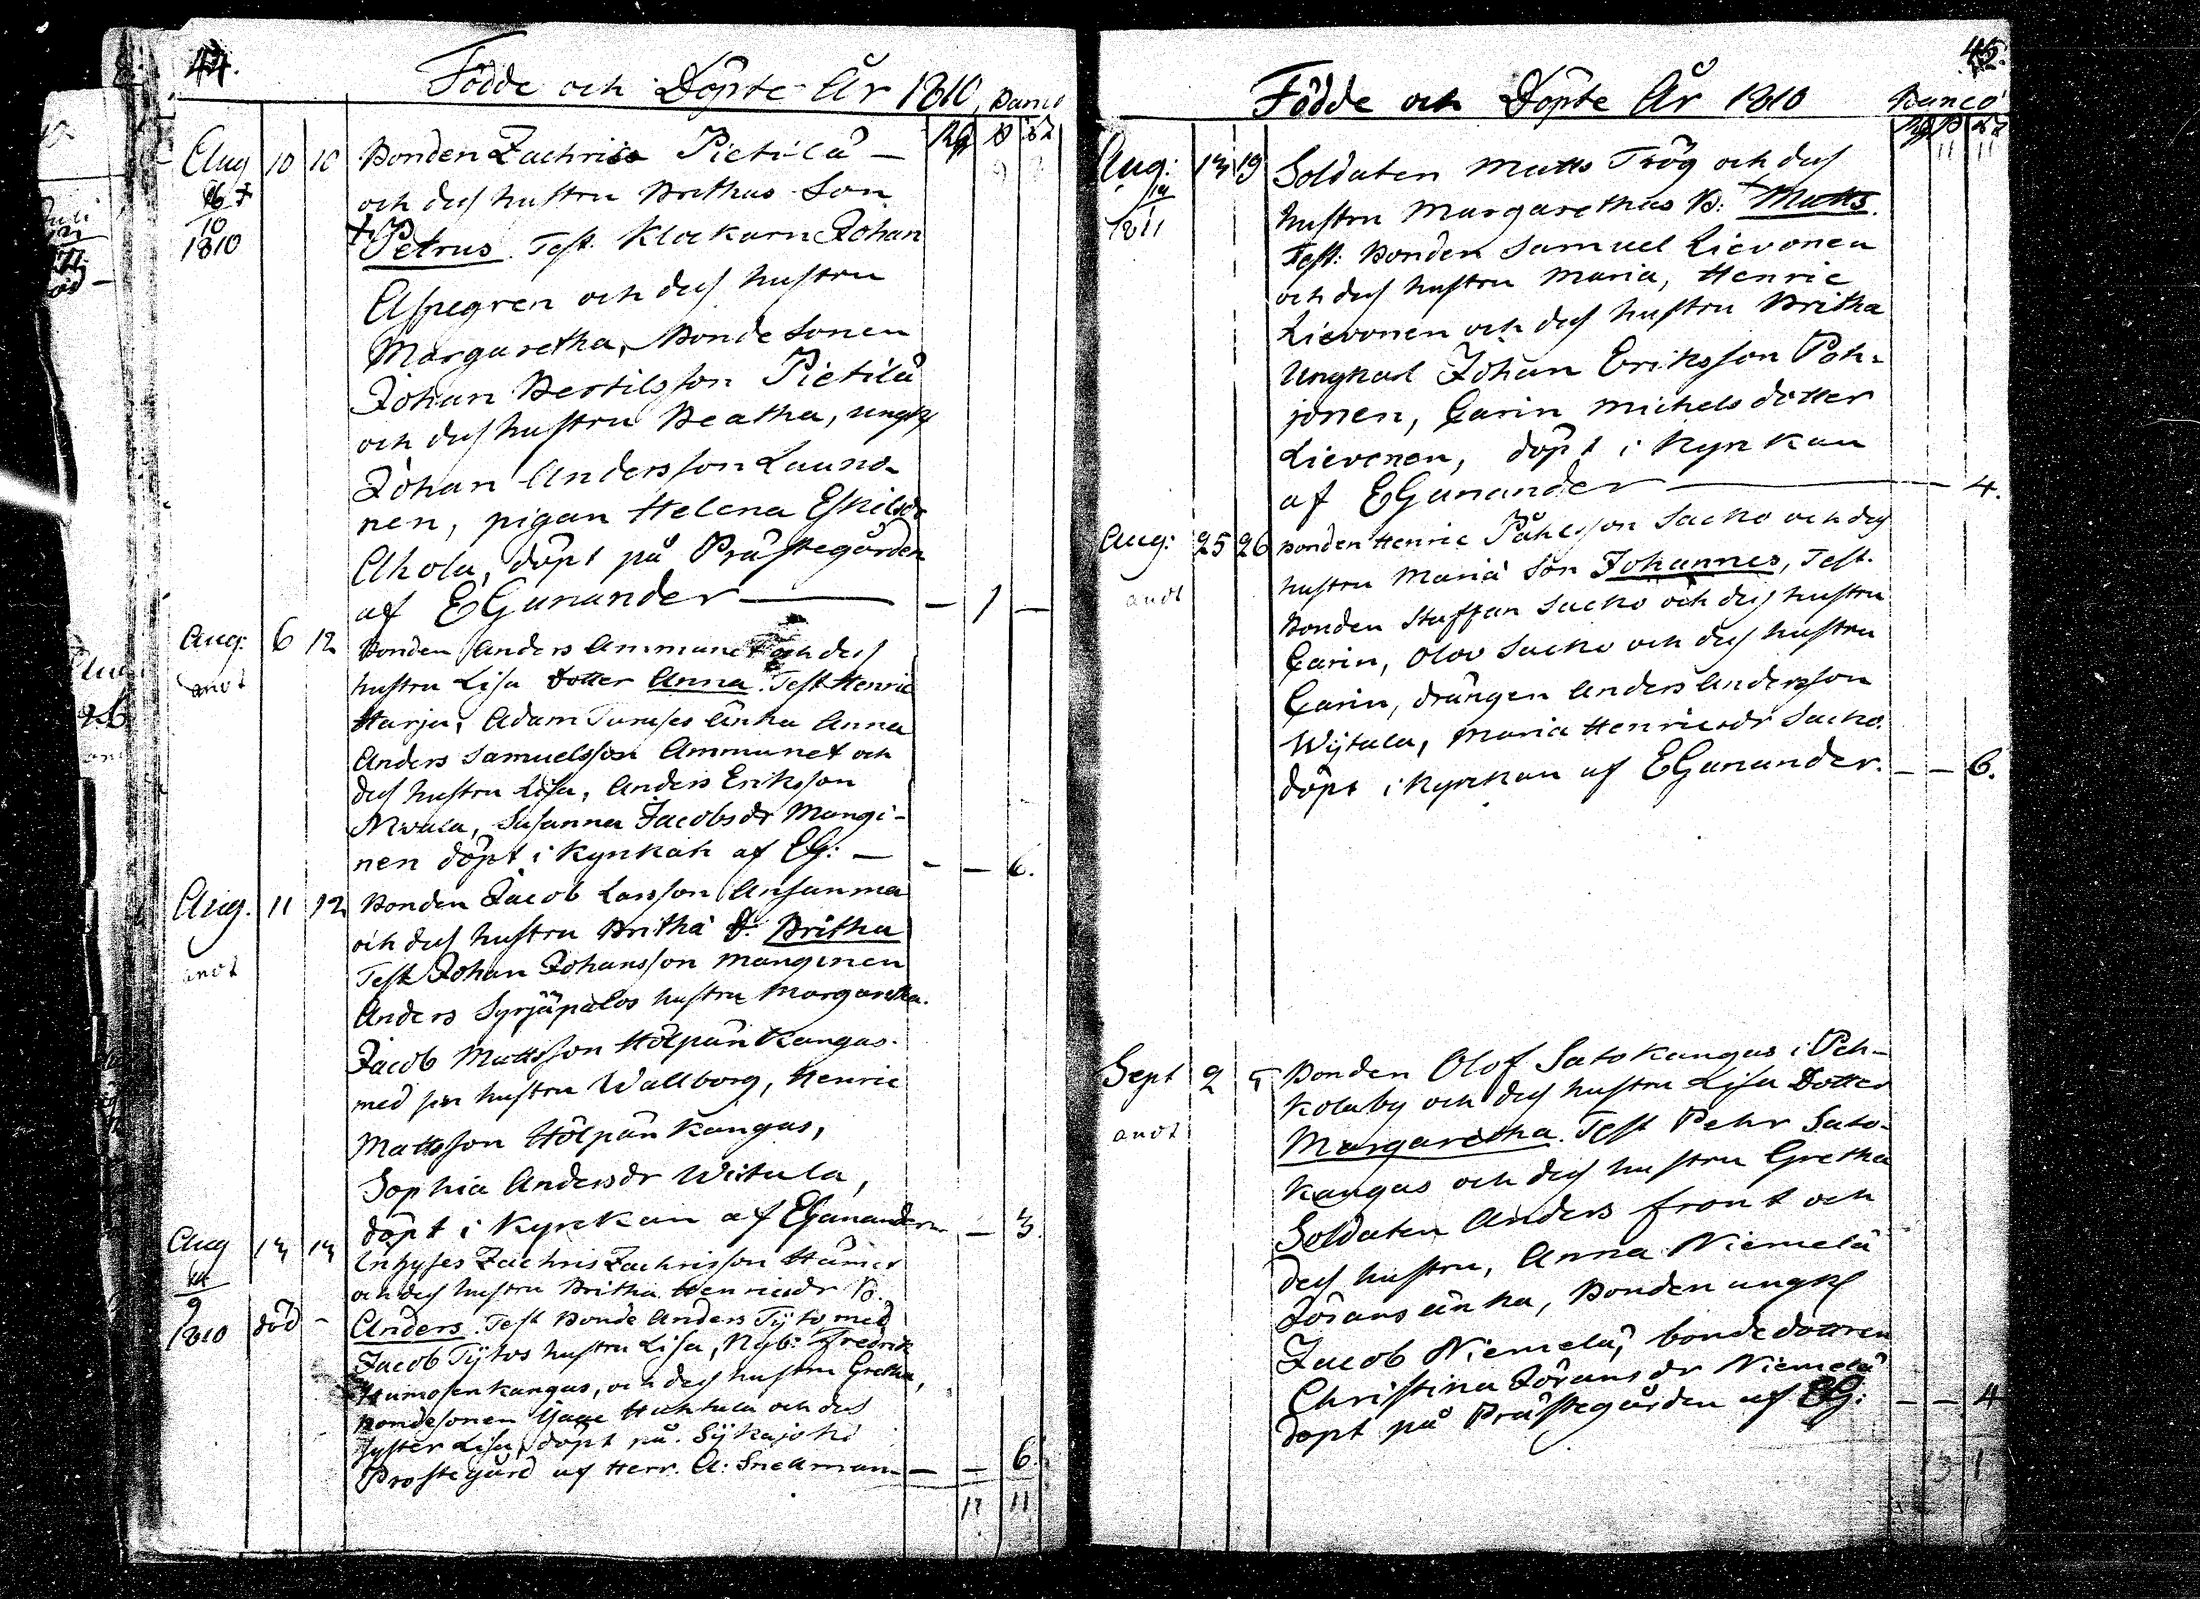 44.
Födde och Döpte År 1810, Banco
Rg ß rs
Aug 10 10 Bonden Zachris Pietilä —
och dess hustru Brithas Son
10
1810
Petrus. Test. Klockarn Johan
Aspegren och dess hustru
Margaretha, Bonde Sonen
Johan Bertilsson Pietilä
och dess hustru Beatha, ungk
Johan Andersson Launo-
nen, pigan Helena Eskilsdr
Ahola, döpt på Prästegården
af EGanander — — 1 —
Aug: 6 12 Bonden Anders Ammunet och dess
anot
hustru Lisa Dotter Anna. Test Henric
Harju, Adam Turuses änka Anna
Anders Samuelsson Ammunet och
dess hustru Lisa, Anders Eriksson
Susanna Jacobsdr Mangi-
nen döpt i Kyrkan af EG: — - — 6.
Aug. 11 12 Bonden Jacob Larsson Ansanma
och dess hustru Britha D. Britha
anot
Test Johan Johansson Manginen
Anders Syrjäpalos hustru Margaretha.
Jacob Mattsson Hölpänkangas
med sin hustru Wallborg, Henric
Mattsson Hölpänkangas,
Sophia Andersdr Wiitala,
döpt i Kyrckan af EGanander — 3.
Aug 13 13 Inhyses Zachris Zachrisson
och dess hustru Britha Henricsdr B.
9
1810 död -
Anders. Test Bonde Anders Tÿto med
Jacob Tÿtos hustru Lisa, Nyb: Fredrik
Humosenkangas, och dess hustru Gretha,
Bondesonen Huhtala och dess
syster Lisa, döpt på Sÿkajoki
Prostegård af Herr. A: Snellman — — 6.
11
45.
Födde och Döpte År 1810 Banco
Aug: 13 19 Soldaten Matts Trög och dess
1811
hustru Margarethas B: Matts.
Test: Bonden Samuel Lievonen
och dess hustru Maria, Henric
Lievonen och dess hustru Britha
Ungkarl Johan Eriksson Poh-
jonen, Carin Michelsdotter
Lievonen, döpt i Kyrkan
af EGanander — 4.
Aug: 25 26 Bonden Henric Påhlsson Sacko och dess
hustru Maria Son Johannes, Test.
anot
Bonden Staffan Sacko och dess hustru
Carin, Olov Sacko och dess hustru
Carin, drängen Anders Andersson
Wijtala, Maria Henricsdr Sacko.
döpt i Kyrkan af EGanander. — — 6.
Sept 2 5 Bonden Olof Satokangas i Peh-
kolaby och dess hustru Lisa Dotter
anot
Margaretha. Test Pehr Sato-
kangas och dess hustru Gretha
Soldaten Anders front och
dess hustru, Anna Niemelä
Jörans änka, Bonden ungk
Jacob Niemelä, bondedottren
Christina Jöransdr Niemelä
döpt på Prästegården af EG: — — 4